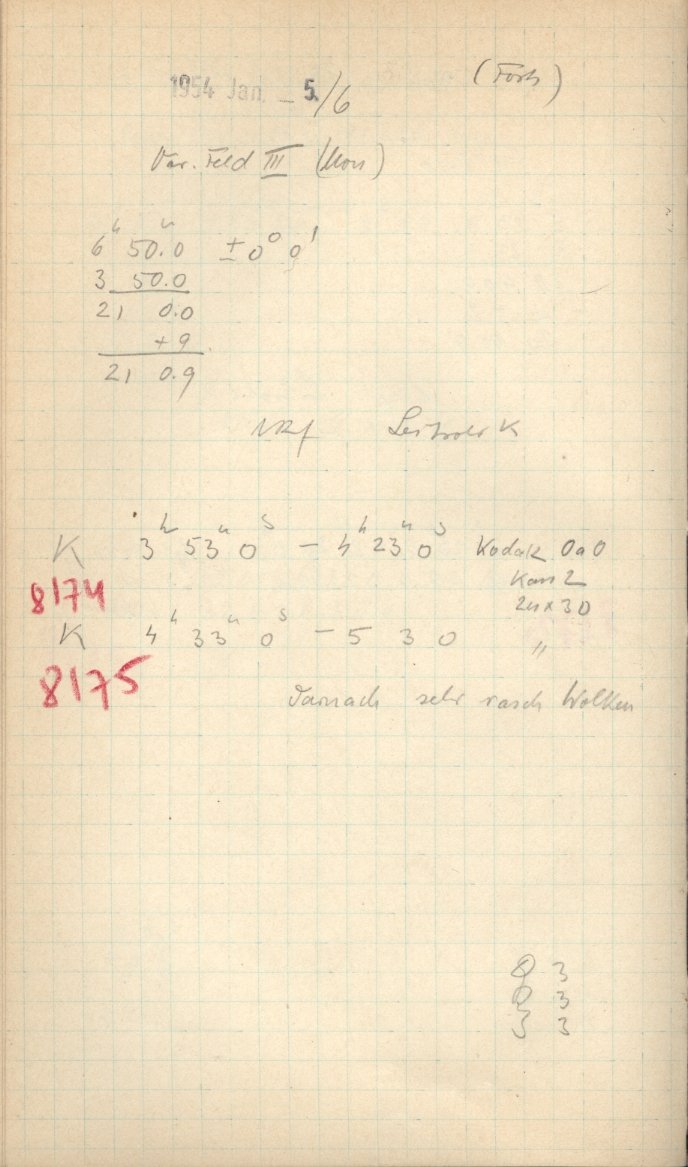 1954 Jan. – 5./6 (Forts)
Var. Feld III (Mon)
6ʰ 50.ᵐ0 ± 0° 0'
3 50.0
21 0.0
+ 9
21 0.9
K
K 3ʰ 53ᵐ 0ˢ – 4ʰ 23ᵐ 0ˢ Kodak OaO
8174
24 x 30
K 4ʰ 33ᵐ 0ˢ – 5 3 0 "
8175
Darnach sehr rasch Wolken
3
3
3 3